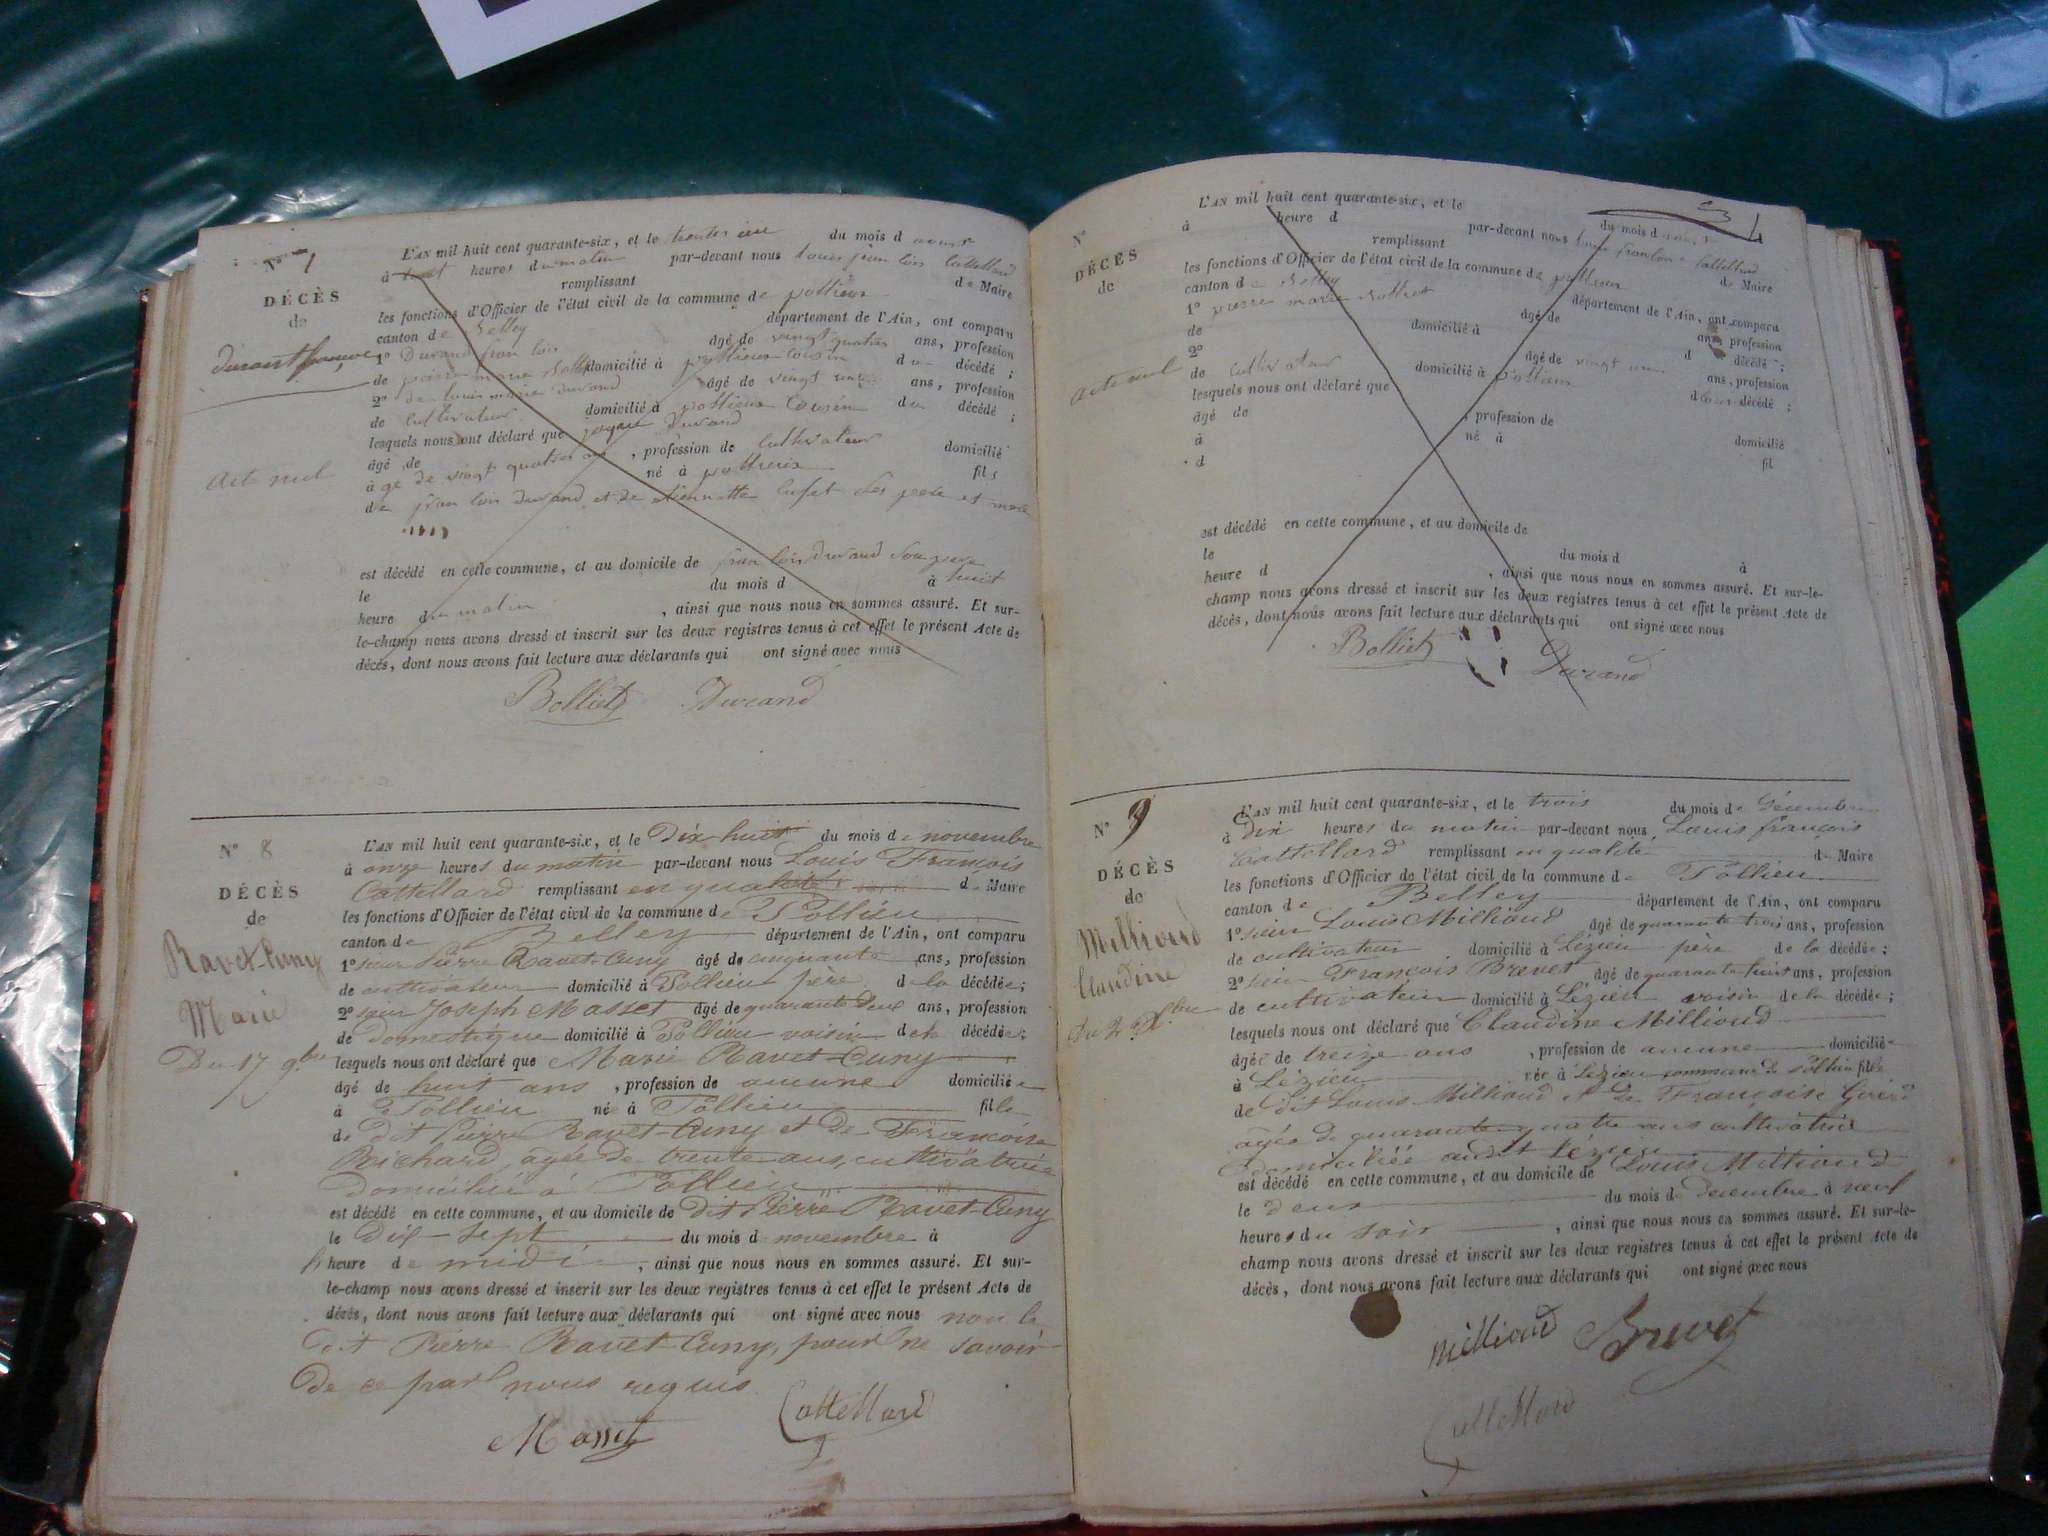 N° 1
DÉCÈS
de
Acte nul
L'AN mil huit cent quarante-six, et le trente un du mois d
à huit heures du matin par-devant nous Cattellard
remplissant de Maire
les fonctions d'Officier de l'état civil de la commune de pollieux
canton de Belley département de l'Ain, ont comparu
1° Durand âgé de vingt quatre ans, profession
de domicilié à pollieux cousin du décédé ;
2° de louis marie durand âgé de vingt ans, profession
de cultivateur domicilié à pollieux cousin du décédé ;
lesquels nous ont déclaré que Durand
âgé de , profession de cultivateur domicilié
à age de vingt quatre ans né à pollieux fils
de durand et de père et mère
est décédé en cette commune, et au domicile de durand son père
le du mois d à huit
heure du matin , ainsi que nous nous en sommes assuré. Et sur-
le-champ nous avons dressé et inscrit sur les deux registres tenus à cet effet le présent Acte de
décès, dont nous avons fait lecture aux déclarants qui ont signé avec nous
Bolliet Durand
N° 8
DÉCÈS
de
Ravet-Cuny
Marie
Du 17 9bre
L'AN mil huit cent quarante-six, et le Dix huit du mois de novembre
à onze heures du matin par-devant nous Louis François
Cattellard remplissant en qualité de Maire
les fonctions d'Officier de l'état civil de la commune de Pollieu
canton de Belley département de l'Ain, ont comparu
1° sieur Pierre Ravet-Cuny âgé de cinquante ans, profession
de cultivateur domicilié à Pollieu père de la décédée ;
2° sieur Joseph Masset âgé de quarante deux ans, profession
de Domestique domicilié à Pollieu voisin de la décédée ;
lesquels nous ont déclaré que Marie Ravet-Cuny
âgé de huit ans , profession de aucune domiciliée
à Pollieu née à Pollieu fille
de dit Pierre Ravet-Cuny et de Françoise
Richard, agée de trente ans, cultivatrice
domiciliée à Pollieu
est décédé en cette commune, et au domicile de dit Pierre Ravet-Cuny
le dix-sept du mois de novembre à
heure de midi , ainsi que nous nous en sommes assuré. Et sur-
le-champ nous avons dressé et inscrit sur les deux registres tenus à cet effet le présent Acte de
décès, dont nous avons fait lecture aux déclarants qui ont signé avec nous non le
dit Pierre Ravet-Cuny, pour ne savoir
de ce par nous requis
Masset Cattellard
N°
DÉCÈS
de
Acte nul
L'AN mil huit cent quarante-six, et le du mois d
à heure d par-devant nous Cattellard
remplissant de Maire
les fonctions d'Officier de l'état civil de la commune de pollieux
canton de Belley département de l'Ain, ont comparu
1° pierre marie Bolliet âgé de ans, profession
de domicilié à d décédé ;
2° âgé de vingt ans, profession
de cultivateur domicilié à pollieux d décédé ;
lesquels nous ont déclaré que
âgé de , profession de
à né à domicilié
d fil
est décédé en cette commune, et au domicile de
le du mois d à
heure d , ainsi que nous nous en sommes assuré. Et sur-le-
champ nous avons dressé et inscrit sur les deux registres tenus à cet effet le présent Acte de
décès, dont nous avons fait lecture aux déclarants qui ont signé avec nous
Bolliet Durand
N° 9
DÉCÈS
de
Millioud
Claudine
Du 2 Xbre
L'AN mil huit cent quarante-six, et le trois du mois de Décembre
à Dix heures du matin par-devant nous Louis François
Cattellard remplissant en qualité de Maire
les fonctions d'Officier de l'état civil de la commune de Pollieu
canton de Belley département de l'Ain, ont comparu
1° sieur Louis Millioud âgé de quarante trois ans, profession
de cultivateur domicilié à Lézieu père de la décédée ;
2° sieur François Brevet âgé de quarante huit ans, profession
de cultivateur domicilié à Lézieu voisin de la décédée ;
lesquels nous ont déclaré que Claudine Millioud
âgée de treize ans , profession de aucune domiciliée
à Lézieu née à Lézieu commune de Pollieu fille
de dit Louis Millioud et de Françoise
agée de quarante quatre ans cultivatrice
domiciliée audit Lézieu
est décédé en cette commune, et au domicile de Louis Millioud
le deux du mois de decembre à neuf
heures du soir , ainsi que nous nous en sommes assuré. Et sur-le-
champ nous avons dressé et inscrit sur les deux registres tenus à cet effet le présent Acte de
décès, dont nous avons fait lecture aux déclarants qui ont signé avec nous
Millioud Brevet
Cattellard